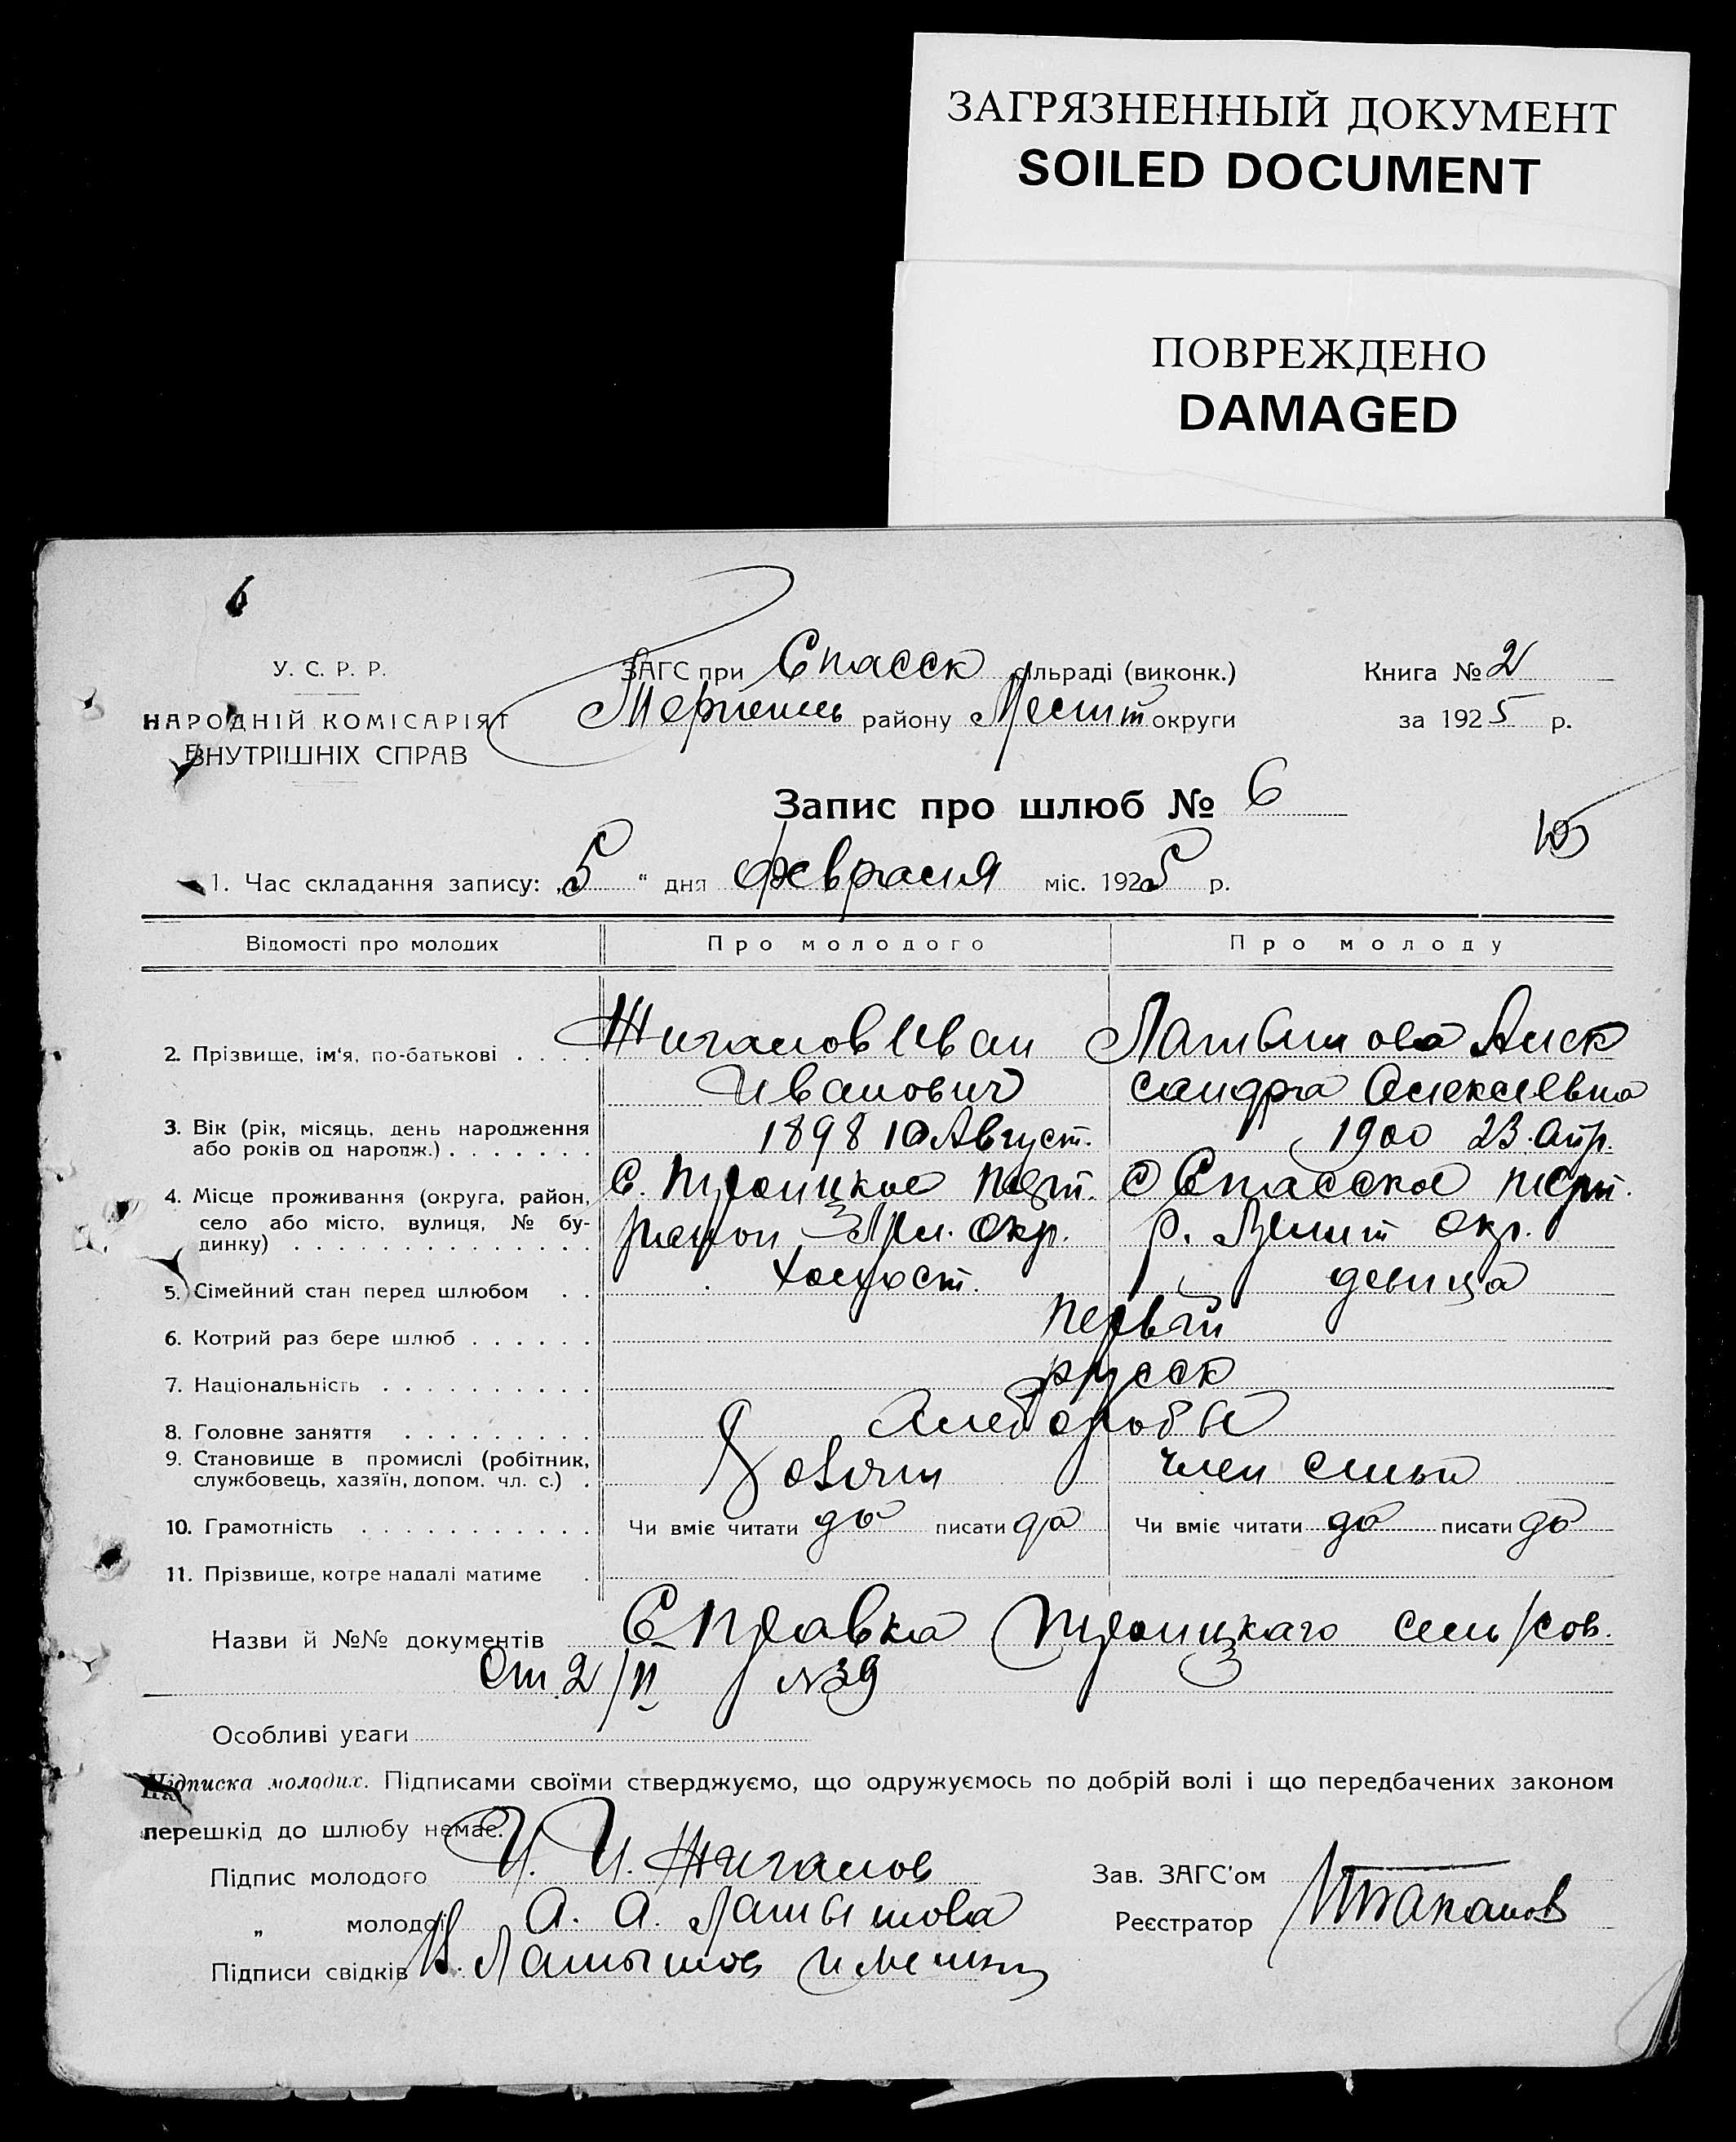 ЗАГРЯЗНЕННЫЙ ДОКУМЕНТ
SOILED DOCUMENT
ПОВРЕЖДЕНО
DAMAGED
6
У. С. Р. Р.
НАРОДНІЙ КОМІСАРІЯТ
ВНУТРІШНІХ СПРАВ
ЗАГС при Спасск сільраді (виконк.)
району округи
Книга № 2
за 1925 р.
Запис про шлюб № 6
105
1. Час складання запису: „5“ дня февраля міс. 1925 р.
Відомості про молодих Про молодого Про молоду
2. Прізвище, ім'я, по-батькові . . . . Жигалов Иван Латышова Алек
Иванович сандра Алексеевна
3. Вік (рік, місяць, день народження 1898 10 Август. 1900 23 Апр.
або років од народж.) . . . . . . .
4. Місце проживання (округа, район, С. Троицкое Терп. С Спасское Терп.
село або місто, вулиця, № бу- район, окр. р. окр.
динку) . . . . . . . . . . . . . .
5. Сімейний стан перед шлюбом . . холост. девица
6. Котрий раз бере шлюб . . . . . . первый
7. Національність . . . . . . . . . . русск
8. Головне заняття . . . . . . . . . хлебороб
9. Становище в промислі (робітник, член семьи
службовець, хазяїн, допом. чл. с.) .
10. Грамотність . . . . . . . . . . . Чи вміє читати да писати да Чи вміє читати да писати да
11. Прізвище, котре надалі матиме .
Назви й №№ документів Справка Троицкаго сель/сов.
От 2/II №39
Особливі уваги
Підписка молодих. Підписами своїми стверджуємо, що одружуємось по добрій волі і що передбачених законом
перешкід до шлюбу немає.
Підпис молодого И. И. Жигалов
„ молодої А. А. Латышова
Підписи свідків Латышов
Зав. ЗАГС'ом
Реєстратор